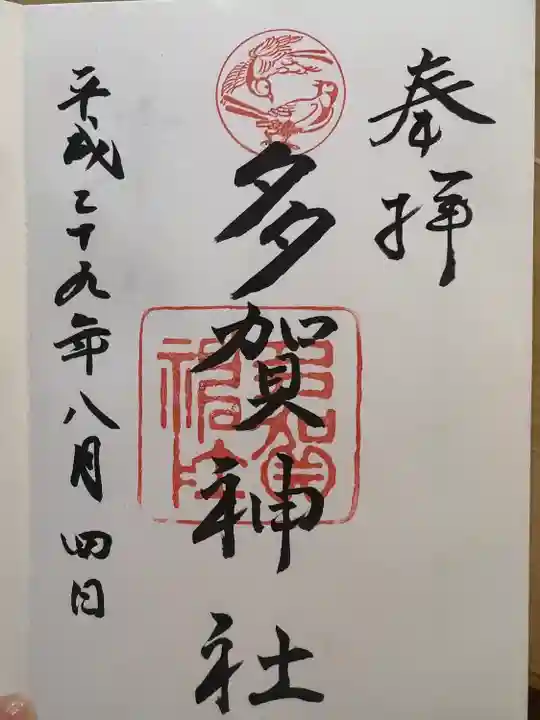 奉拝
多賀神社
平成二十九年八月四日